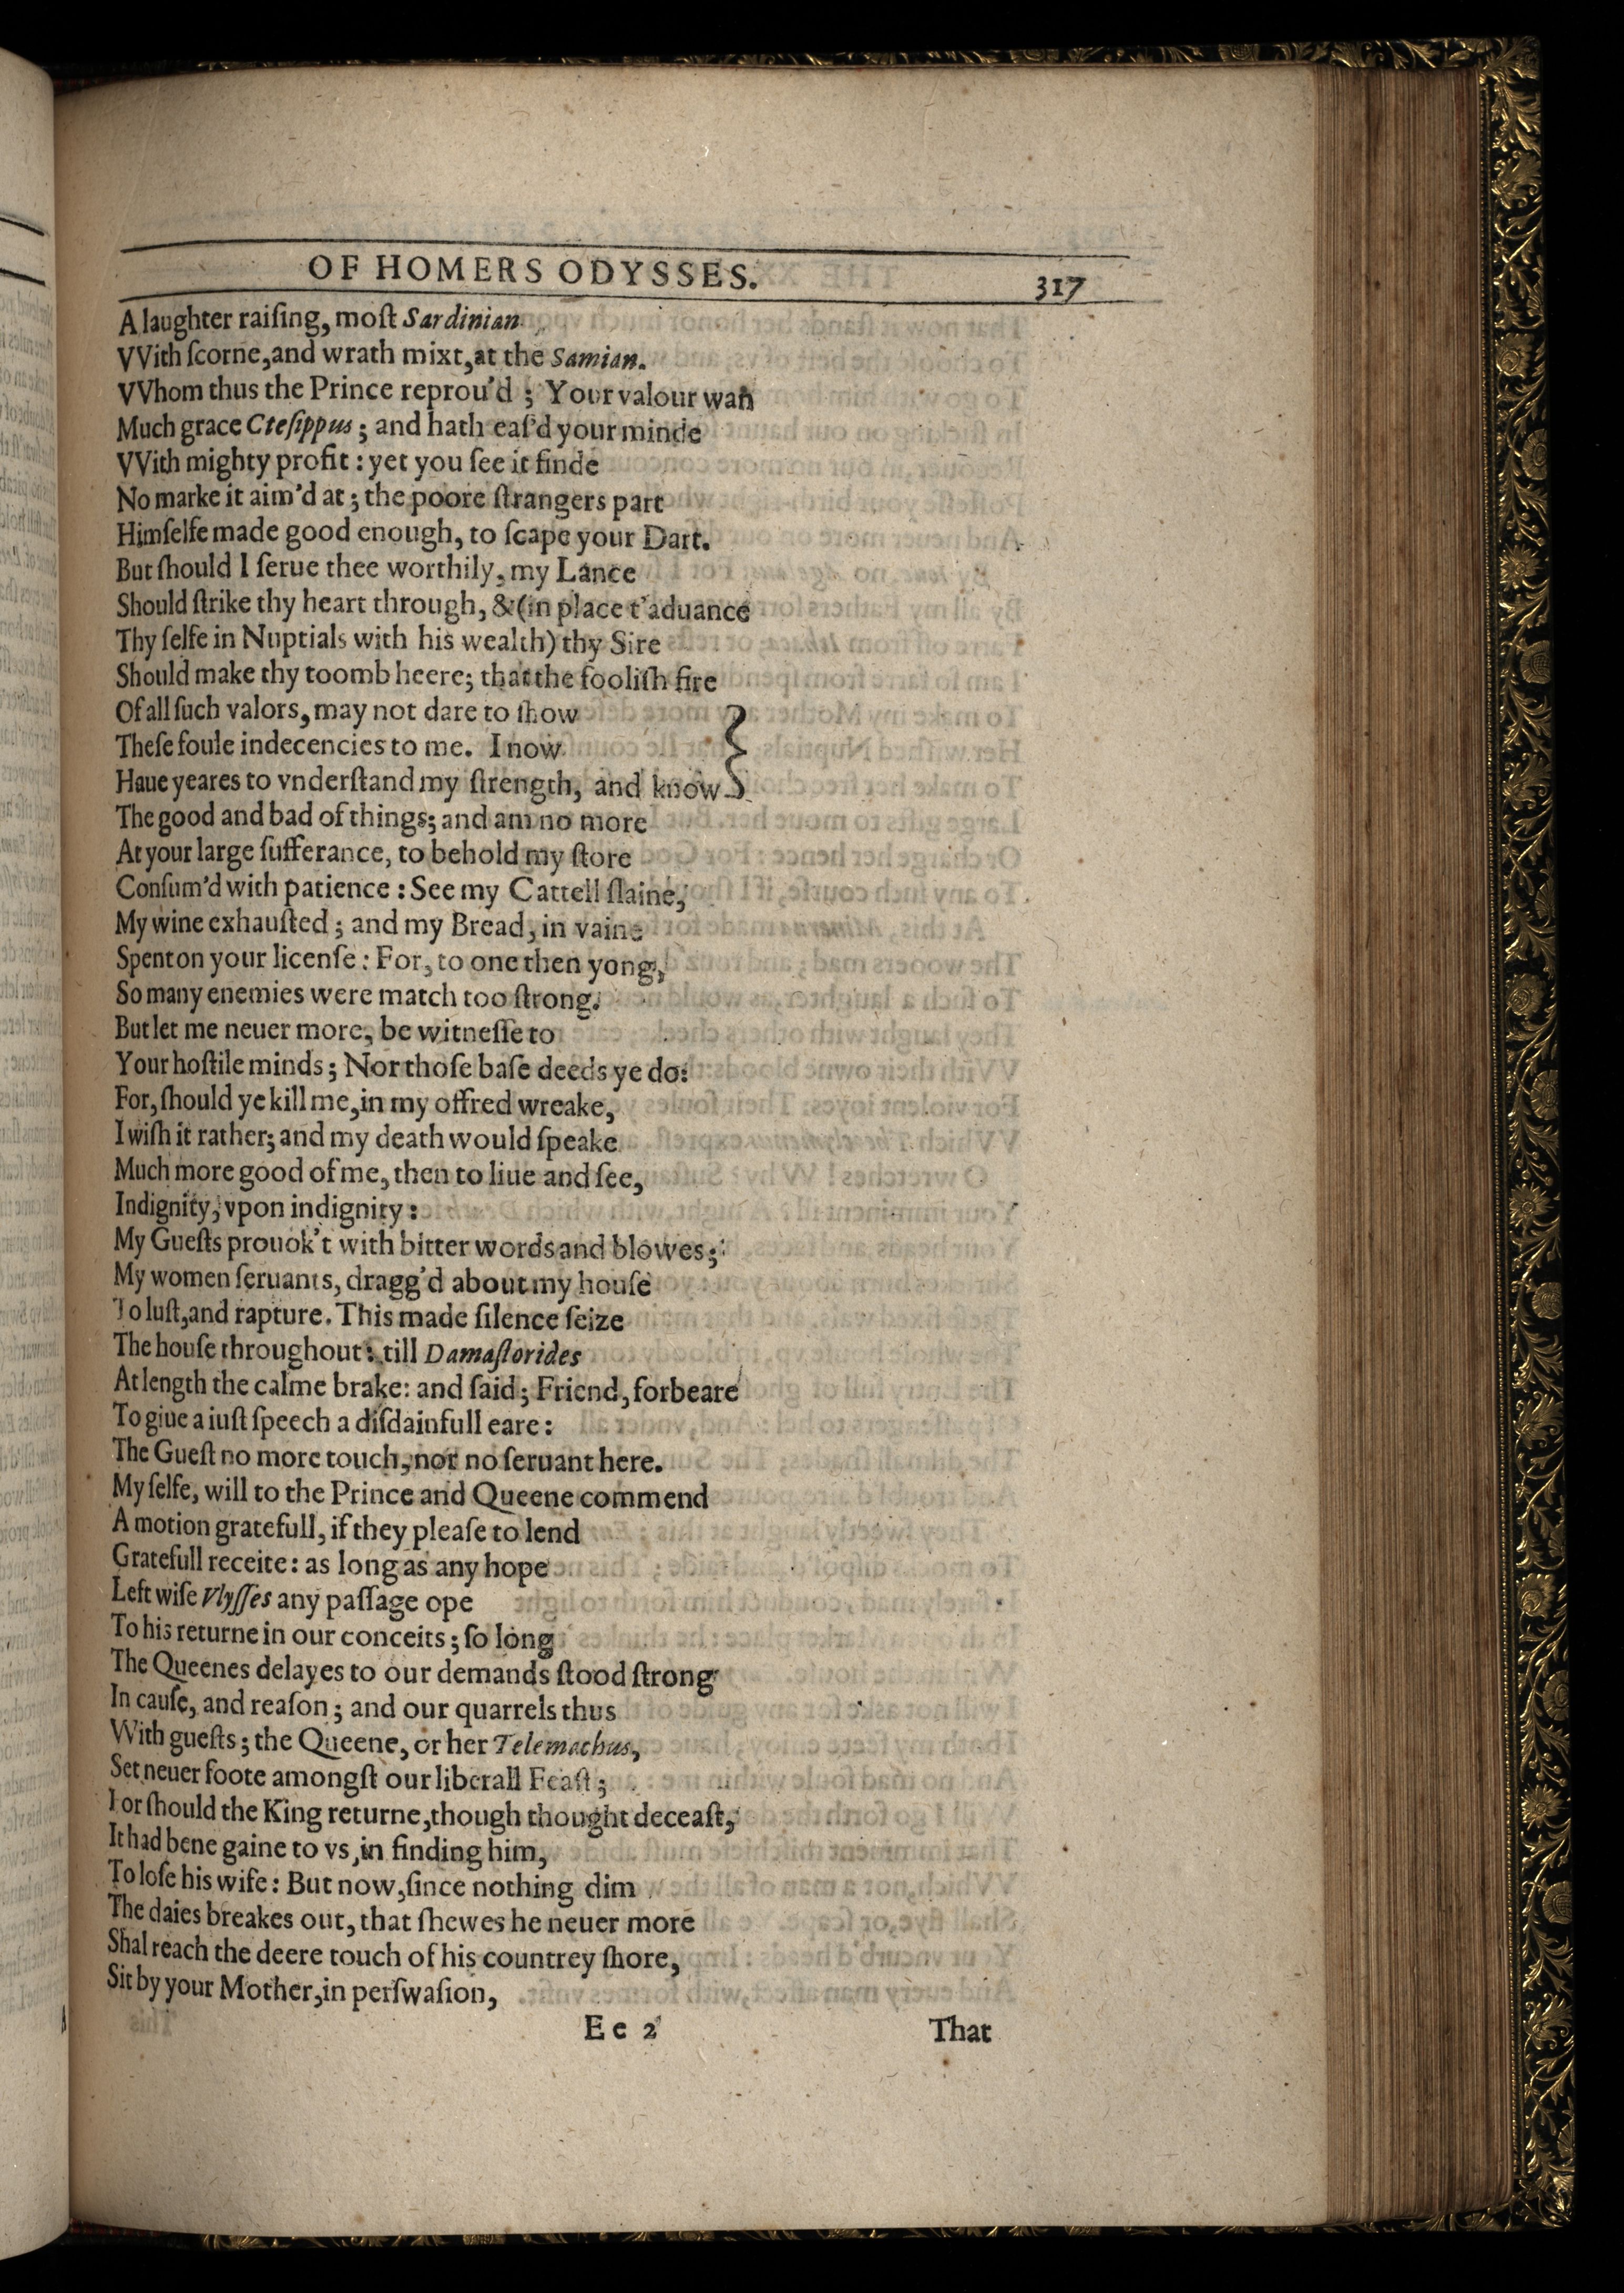 OF HOMERS ODYSSES. 317
A laughter raiſing, moſt Sardinian
VVith ſcorne, and wrath mixt, at the Samian.
VVhom thus the Prince reprou'd ; Your valour wan
Much grace Cteſippus ; and hath eaſ'd your minde
VVith mighty profit : yet you ſee it finde
No marke it aim'd at ; the poore ſtrangers part
Himſelfe made good enough, to ſcape your Dart.
But ſhould I ſerue thee worthily, my Lance
Should ſtrike thy heart through, & (in place t'aduance
Thy ſelfe in Nuptials with his wealth) thy Sire
Should make thy toomb heere; that the fooliſh fire
Of all ſuch valors, may not dare to ſhow
Theſe foule indecencies to me. I now
Haue yeares to vnderſtand my ſtrength, and know
The good and bad of things; and am no more
At your large ſufferance, to behold my ſtore
Conſum'd with patience : See my Cattell ſlaine,
My wine exhauſted ; and my Bread, in vaine
Spent on your licenſe : For, to one then yong,
So many enemies were match too ſtrong.
But let me neuer more, be witneſſe to
Your hoſtile minds ; Nor thoſe baſe deeds ye do:
For, ſhould ye kill me, in my offred wreake,
I wiſh it rather; and my death would ſpeake
Much more good of me, then to liue and ſee,
Indignity, vpon indignity :
My Gueſts prouok't with bitter words and blowes;
My women ſeruants, dragg'd about my houſe
To luſt, and rapture. This made ſilence ſeize
The houſe throughout : till Damaſtorides
At length the calme brake: and ſaid ; Friend, forbeare
To giue a iuſt ſpeech a diſdainfull eare :
The Gueſt no more touch, nor no ſeruant here.
My ſelfe, will to the Prince and Queene commend
A motion gratefull, if they pleaſe to lend
Gratefull receite: as long as any hope
Left wiſe Vlyſſes any paſſage ope
To his returne in our conceits ; ſo long
The Queenes delayes to our demands ſtood ſtrong
In cauſe, and reaſon ; and our quarrels thus
With gueſts ; the Queene, or her Telemachus,
Set neuer foote amongſt our liberall Feaſt ;
For ſhould the King returne, though thought deceaſt,
It had bene gaine to vs, in finding him,
To loſe his wife : But now, ſince nothing dim
The daies breakes out, that ſhewes he neuer more
Shal reach the deere touch of his countrey ſhore,
Sit by your Mother, in perſwaſion,
E e 2 That